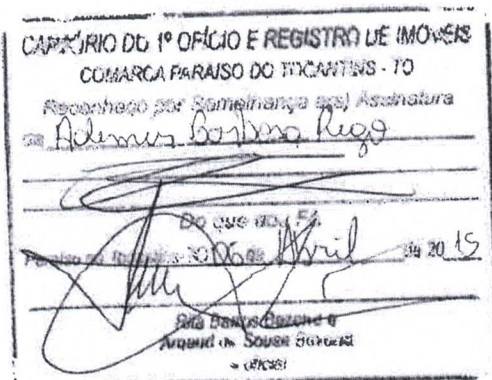 CARTÓRIO DO 1º OFÍCIO E REGISTRO DE IMÓVEIS
COMARCA PARAISO DO TOCANTINS - TO
Reconheço por Semelhança a(s) Assinatura
de Ademir Barbosa Rego
Do que dou Fé.
Paraiso do Tocantins-TO 06 de Abril de 20 15
Rita Bastos
de Sousa
oficial